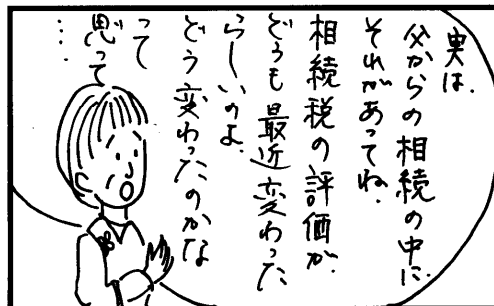 実は、
父からの相続の中に
それがあってね、
相続税の評価が、
どうも最近変わった
らしいのよ。
どう変わったのかな
って
思って
…